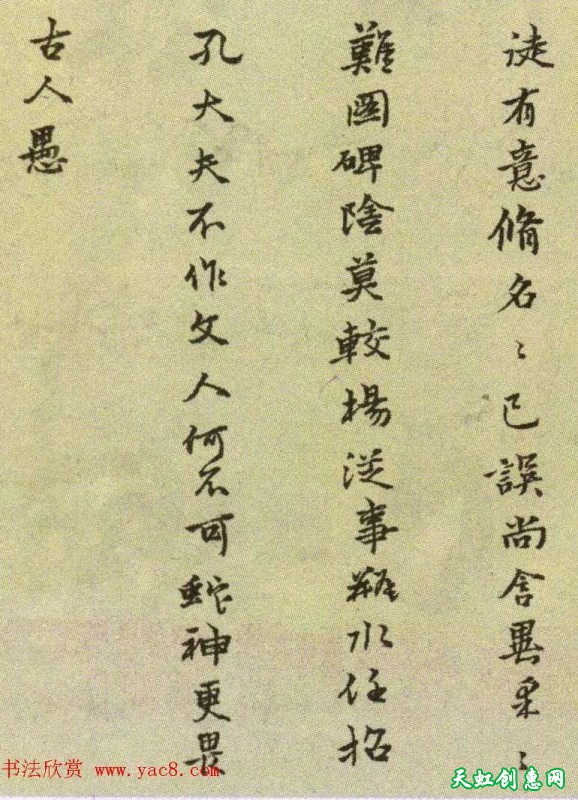 徒有意脩名〻已誤尚含異采〻
難圖碑陰莫較楊從事瓶水任招
孔大夫不作文人何不可蛇神更畏
古人愚
书法欣赏 www.yac8.com
天虹创惠网